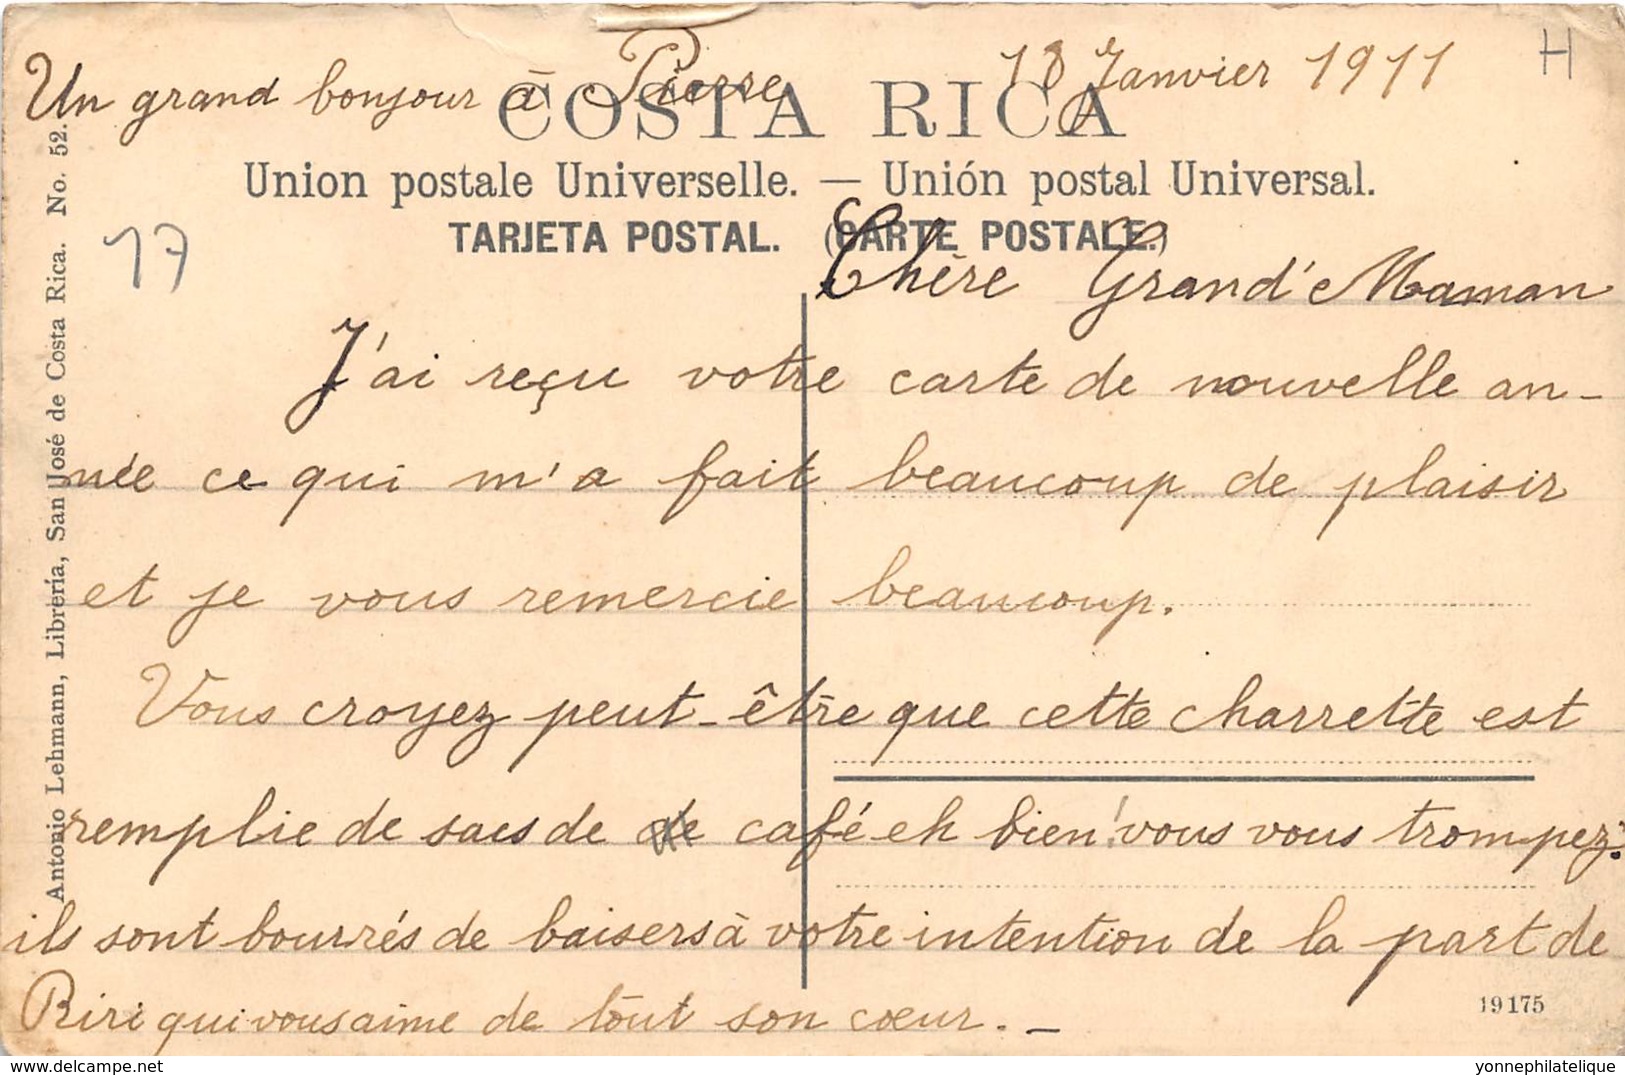 Un grand bonjour à Pierre
18 Janvier 1911
H
COSTA RICA
Union postale Universelle. — Unión postal Universal.
TARJETA POSTAL. (CARTE POSTALE.)
17
Antonio Lehmann, Librería, San José de Costa Rica. No. 52.
Chère Grand'Maman
J'ai reçu votre carte de nouvelle an-
née ce qui m'a fait beaucoup de plaisir
et je vous remercie beaucoup.
Vous croyez peut-être que cette charrette est
remplie de sacs de de café eh bien! vous vous trompez:
ils sont bourrés de baisers à votre intention de la part de
Riri qui vous aime de tout son cœur. —
19175
www.delcampe.net
yonnephilatelique